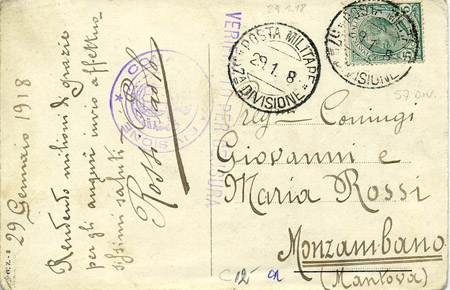 29 Gennaio 1918
Rendendo milioni di grazie
per gli auguri invio affettuo-
sissimi saluti.
Rossi
VERIFICATO PER CENSURA
POSTA MILITARE
29.1.8
57ª DIVISIONE
29.1.18
57 DIV.
Coniugi
Giovanni e
Maria Rossi
Monzambano
(Mantova)
C12-